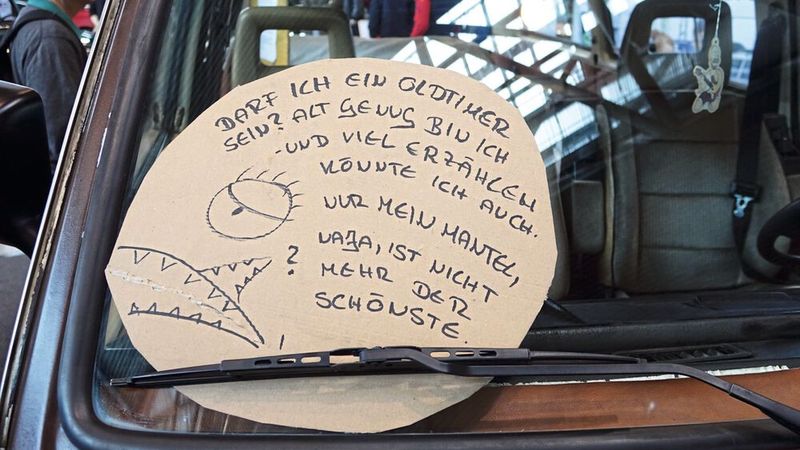 DARF ICH EIN OLDTIMER
SEIN? ALT GENUG BIN ICH
- UND VIEL ERZÄHLEN
KÖNNTE ICH AUCH.
NUR MEIN MANTEL,
NAJA, IST NICHT
MEHR DER
SCHÖNSTE.
?
!